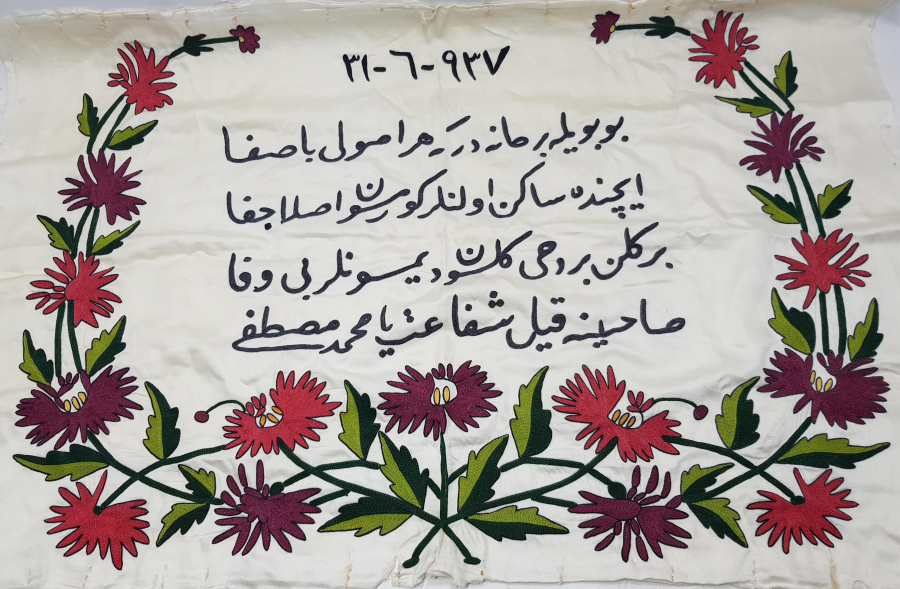 ٣١-٦-٩٣٧
بو بویله برحانه در که هر اصول باصفا
ایچنده ساکن اولنلر کورمسون اصلا جفا
بر کلن بر دخی کلسون دیمسونلر بی وفا
صاحبینه قیل شفاعت یا محمد مصطفی